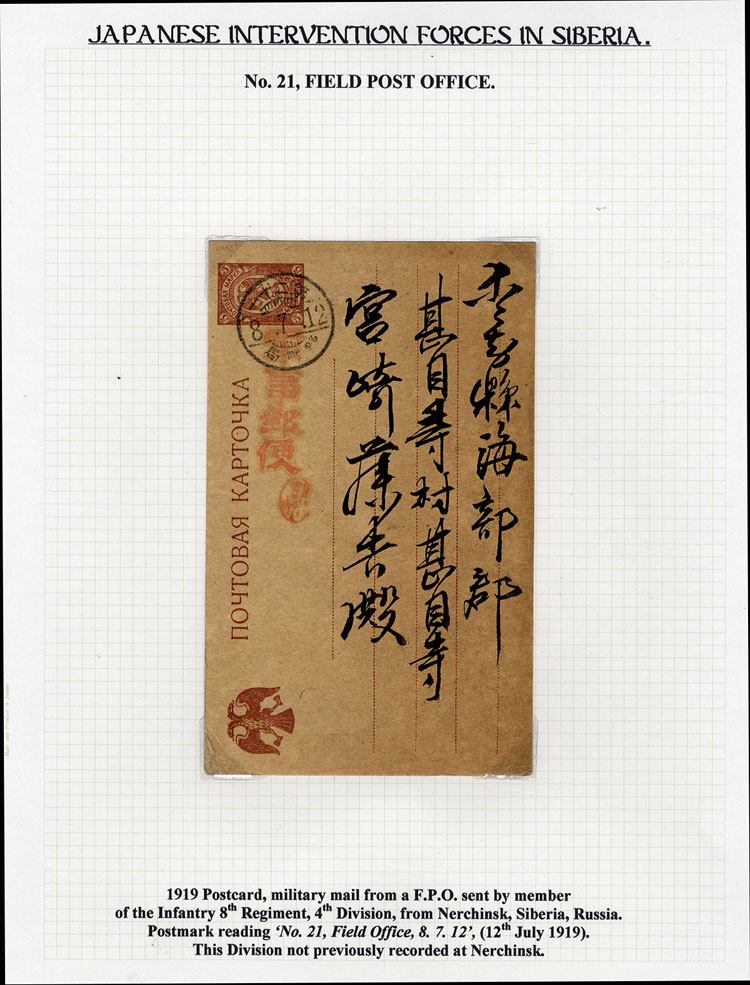 JAPANESE INTERVENTION FORCES IN SIBERIA.
No. 21, FIELD POST OFFICE.
縣海部郡
甚目寺村甚目寺
宮崎
殿
7
12
局
事郵便
ПОЧТОВАЯ КАРТОЧКА
1919 Postcard, military mail from a F.P.O. sent by member
of the Infantry 8th Regiment, 4th Division, from Nerchinsk, Siberia, Russia.
Postmark reading ‘No. 21, Field Office, 8. 7. 12’, (12th July 1919).
This Division not previously recorded at Nerchinsk.